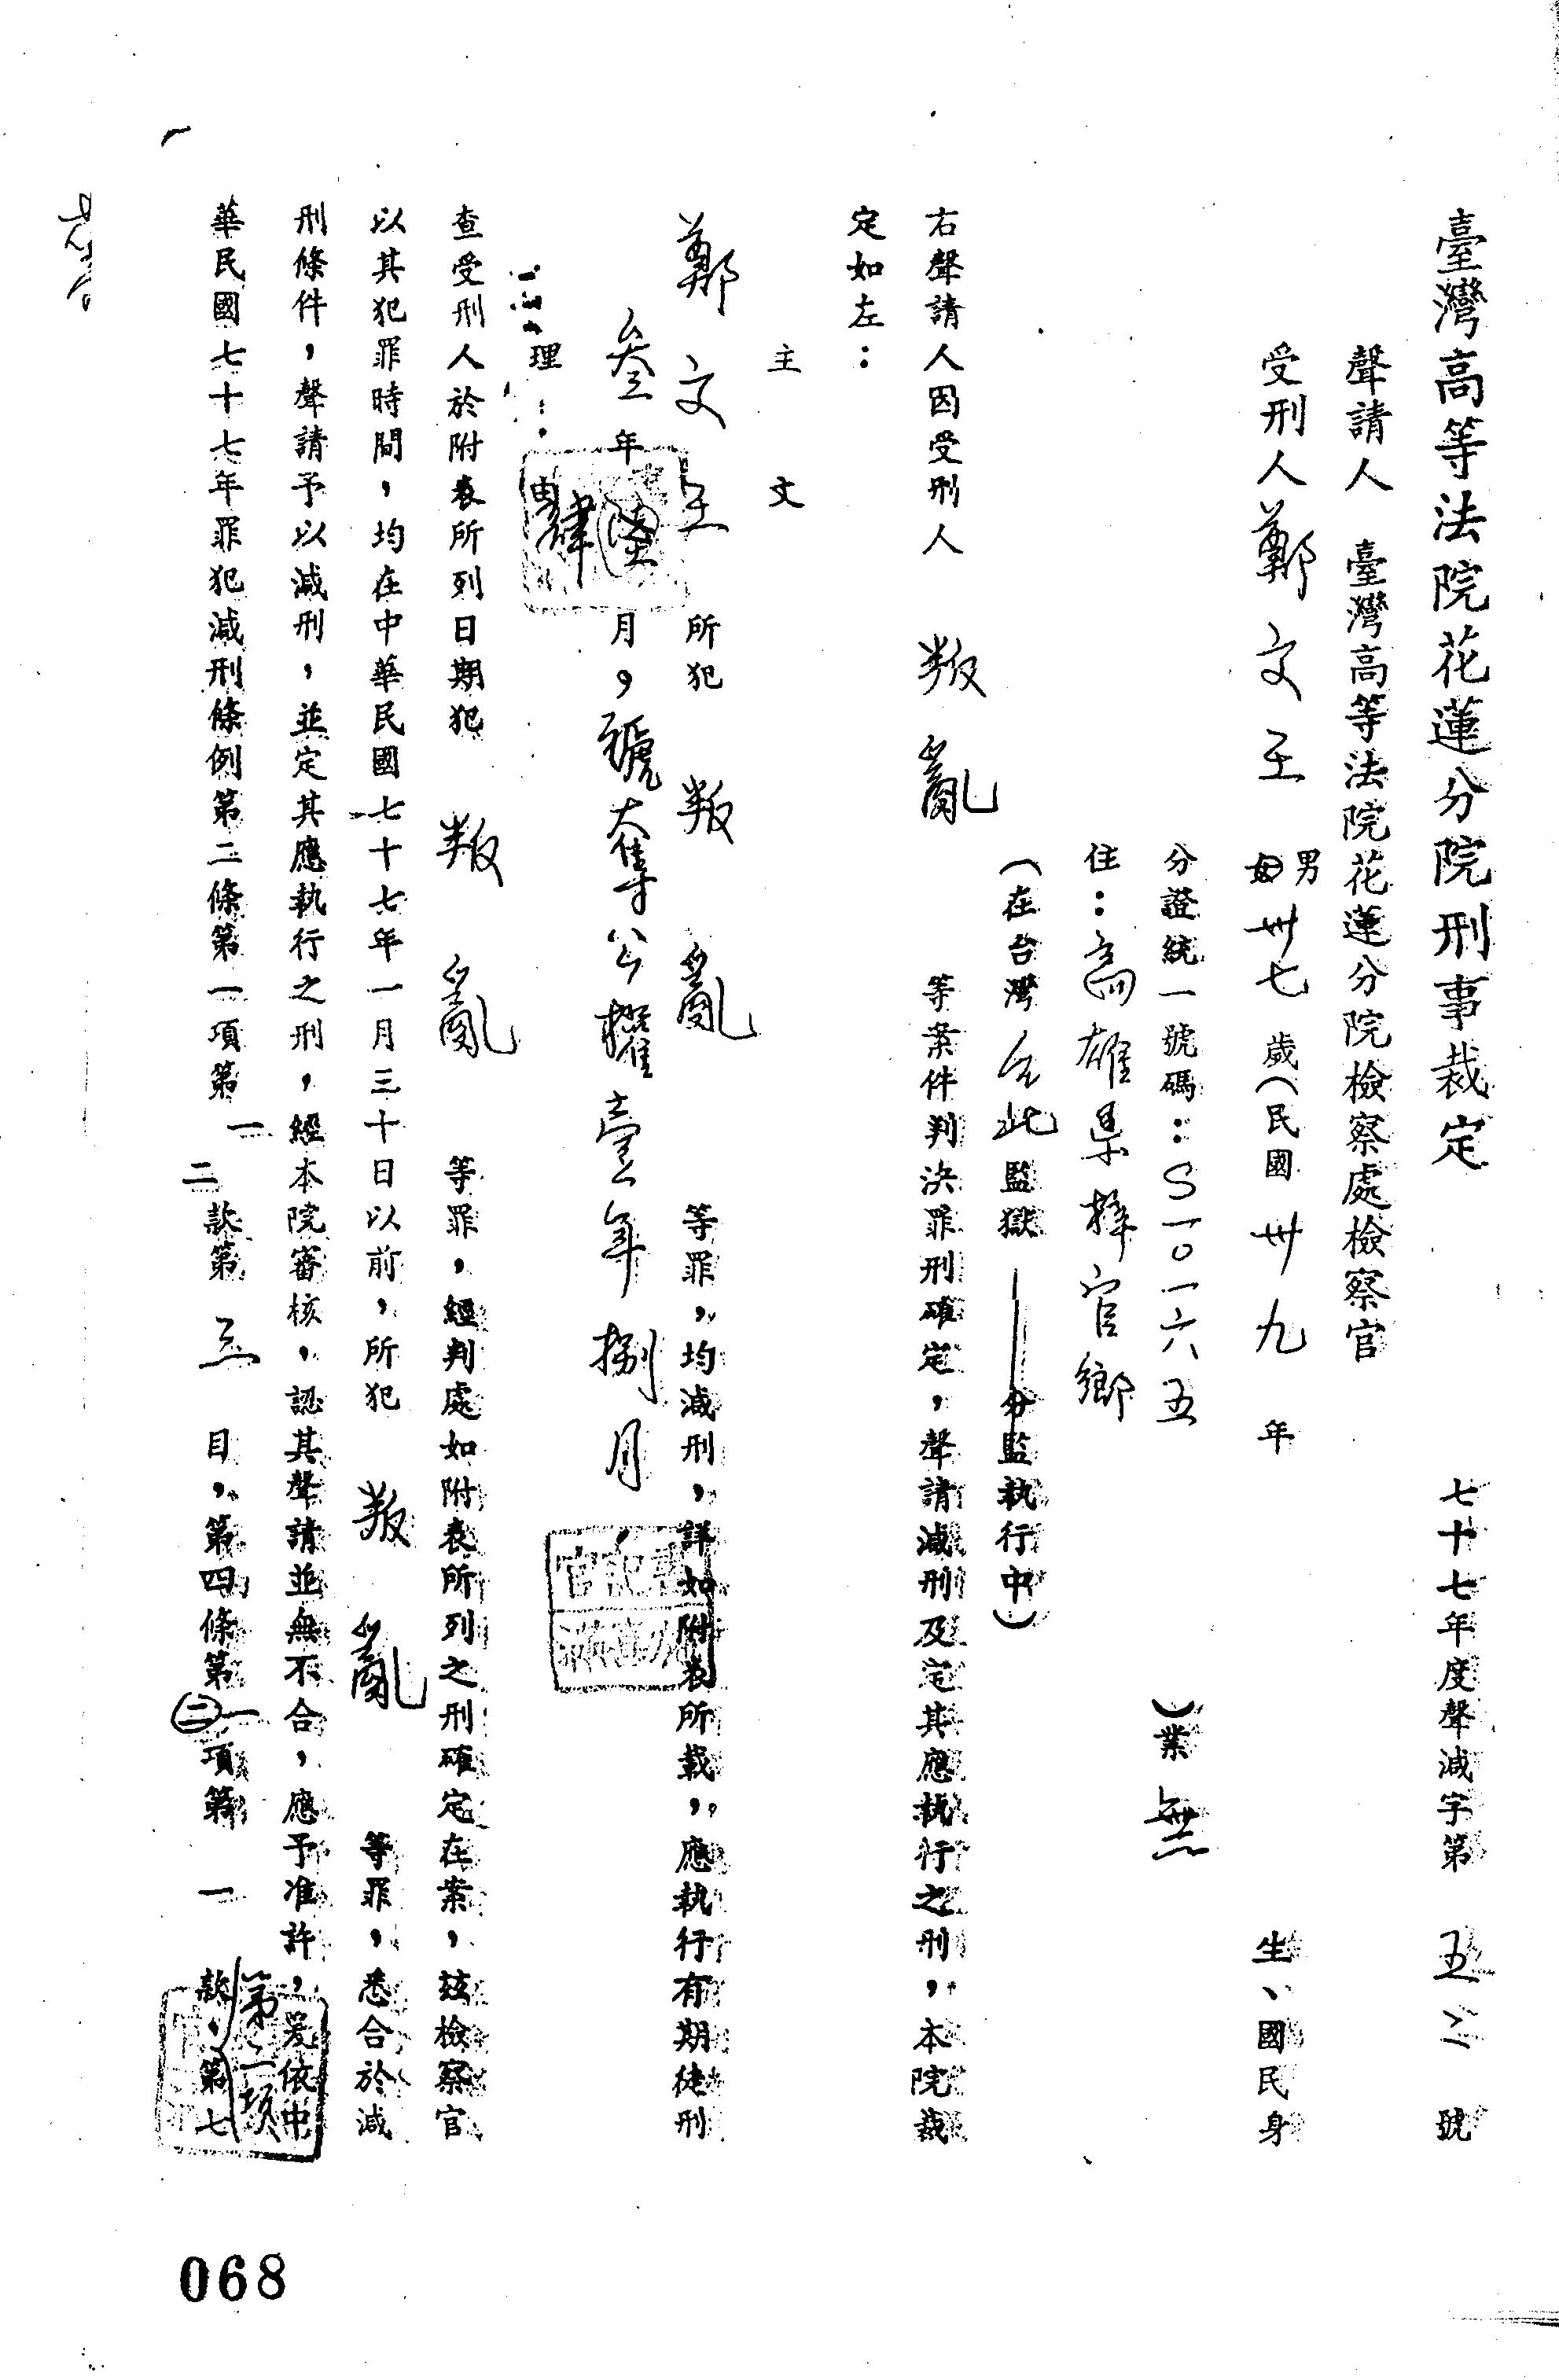 臺灣高等法院花蓮分院刑事裁定 七十七年度聲減字第 五二 號
聲請人 臺灣高等法院花蓮分院檢察處檢察官
受刑人 鄭文王 男 卅七 歲(民國 卅九 年 生、國民身
分證統一號碼:S一○一六五 )業 無
住:高雄県梓官鄉
(在台灣台北監獄 分監執行中)
右聲請人因受刑人 叛亂 等案件判決罪刑確定,聲請減刑及定其應執行之刑,本院裁
定如左:
主文
鄭文王 所犯 叛亂 等罪,均減刑,詳如附表所載,應執行有期徒刑
叁年肆月,褫奪公權壹年捌月,
理由
查受刑人於附表所列日期犯 叛亂 等罪,經判處如附表所列之刑確定在案,茲檢察官
以其犯罪時間,均在中華民國七十七年一月三十日以前,所犯 叛亂 等罪,悉合於減
刑條件,聲請予以減刑,並定其應執行之刑,經本院審核,認其聲請並無不合,應予准許,爰依中
華民國七十七年罪犯減刑條例第二條第一項第 一 二 款第 三 目,第四條第 二 一 項第 一 款、第二項 第七
068